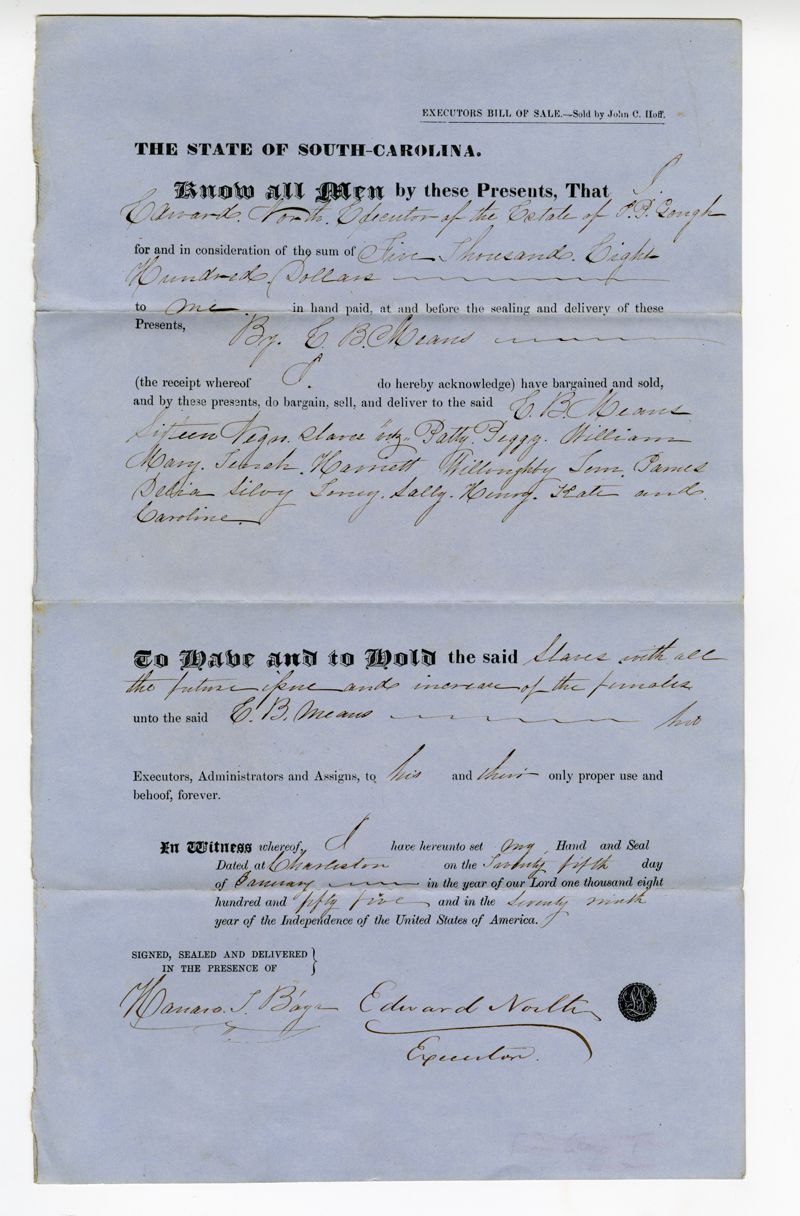 EXECUTORS BILL OF SALE.—Sold by John C. Hoff.
THE STATE OF SOUTH-CAROLINA.
Know all Men by these Presents, That I.
Edward. North. Executor of the Estate of Gough
for and in consideration of the sum of Five Thousand. Eight
Hundred. Dollars
to me in hand paid, at and before the sealing and delivery of these
Presents, By. E. B. Means
(the receipt whereof I. do hereby acknowledge) have bargained and sold,
and by these presents, do bargain, sell, and deliver to the said E. B. Means
Fifteen Negro. Slaves "viz" Patty. Peggy. William
Mary. Harriett Willoughby
Delia Silvy Toney. Sally. Henry. Kate and.
Caroline.
To Have and to Hold the said Slaves with all
the future issue and increase of the females
unto the said E. B. Means his
Executors, Administrators and Assigns, to his and their only proper use and
behoof, forever.
In Witness whereof, I have hereunto set my Hand and Seal
Dated at Charleston on the Twenty fifth day
of January in the year of our Lord one thousand eight
hundred and fifty five and in the Seventy ninth
year of the Independence of the United States of America.
SIGNED, SEALED AND DELIVERED
IN THE PRESENCE OF
Edward North
Executor.